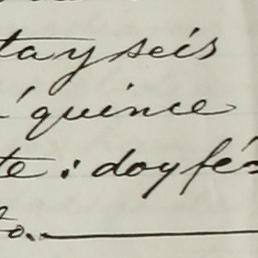 tay seis
quince
te: doy fé
to.